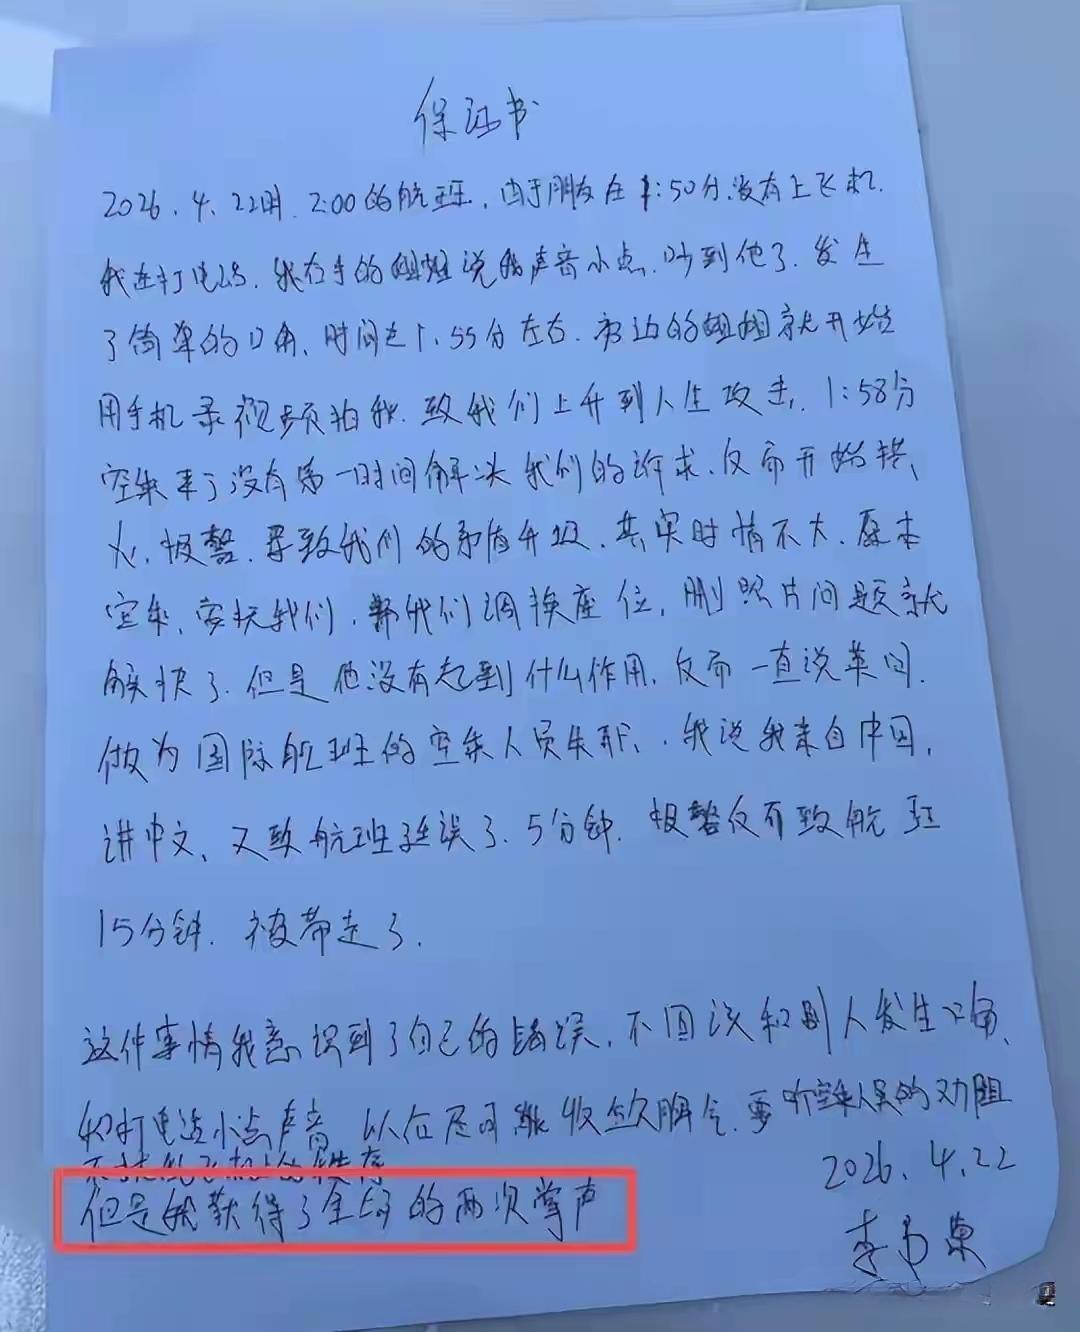 保证书
2026.4.22日.2:00的航班,由于朋友在1:50分.没有上飞机.
我在打电话.我右手的姐姐说我声音小点.吵到他了.发生
了简单的口角、时间是1.55分左右.旁边的姐姐就开始
用手机录视频拍我.致我们上升到人生攻击.1:58分
空乘来了没有第一时间解决我们的诉求.反而开始拱、
火.报警.导致我们的矛盾升级.其实时情不大.原本
空乘、安抚我们.帮我们调换座位,删照片问题就
解决了.但是他没有起到什么作用.反而一直说英国.
做为国际航班的空乘人员失职.我说我来自中国.
讲中文、又致航班延误了.5分钟.报警反而致航班
15分钟.被带走了.
这件事情我意识到了自己的错误.不因该和别人发生口角、
和打电话小点声音.以后尽可能收敛脾气.要听空乘人员的劝阻
2026.4.22
但是我获得了全场的两次掌声
李